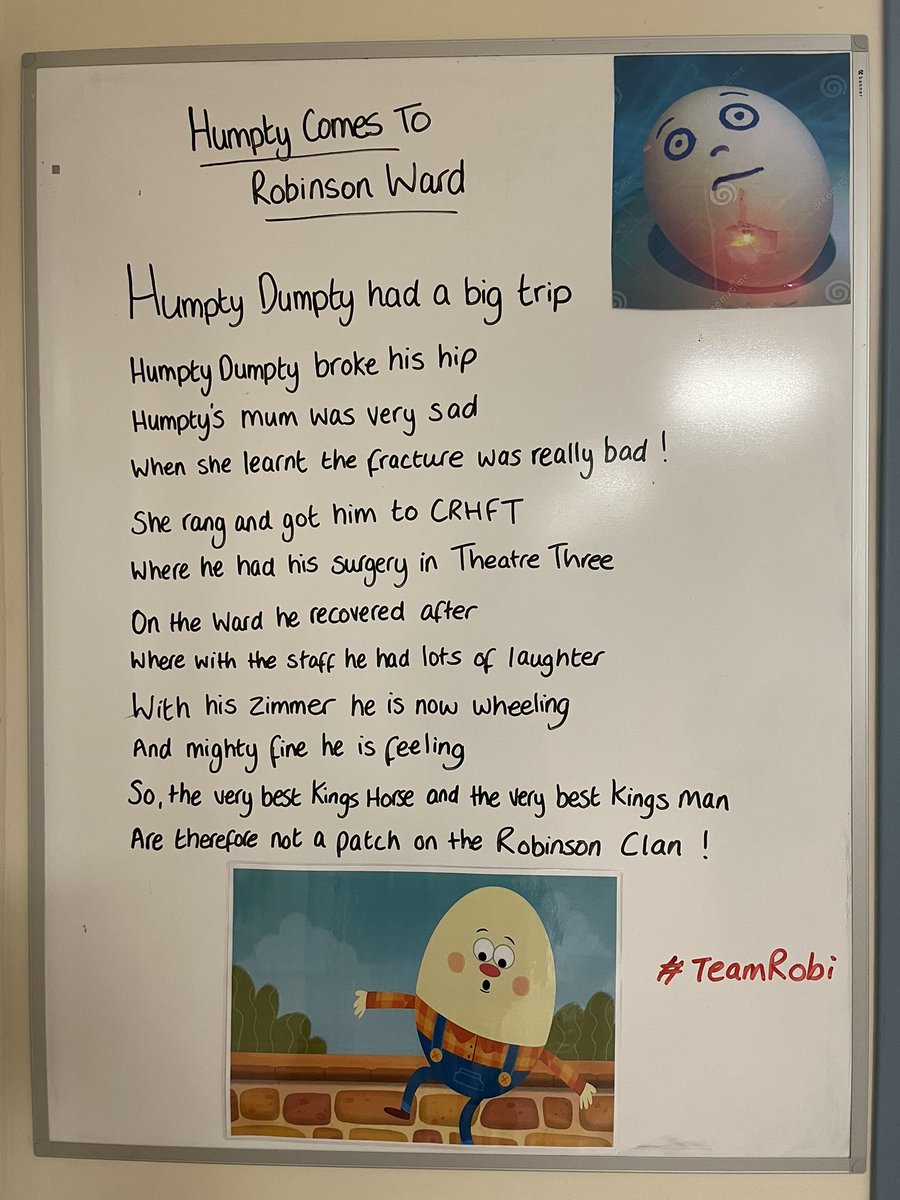 Humpty Comes To
Robinson Ward
Humpty Dumpty had a big trip
Humpty Dumpty broke his hip
Humpty's mum was very sad
When she learnt the fracture was really bad !
She rang and got him to CRHFT
Where he had his surgery in Theatre Three
On the Ward he recovered after
Where with the staff he had lots of laughter
With his zimmer he is now wheeling
And mighty fine he is feeling
So, the very best Kings Horse and the very best Kings Man
Are therefore not a patch on the Robinson Clan !
#TeamRobi